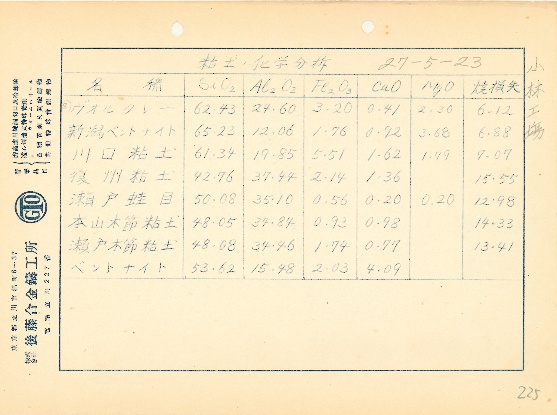 粘土・化学分析 27-5-23
小林工場
名 稱 SiO₂ Al₂O₃ Fe₂O₃ CaO MgO 焼損失
62.43 24.60 3.20 0.41 2.30 6.12
新潟ベントナイト 65.22 12.06 1.76 0.92 3.68 6.88
川口粘土 61.34 19.85 5.51 1.62 1.79 7.07
42.76 37.44 2.14 1.36 15.55
瀬戸蛙目 50.08 35.10 0.56 0.20 0.20 12.98
本山木節粘土 48.05 34.84 0.93 0.98 14.33
瀬戸木節粘土 48.08 34.46 1.74 0.77 13.41
ベントナイト 53.62 15.48 2.03 4.09
GTO
後藤合金鑄工所
225